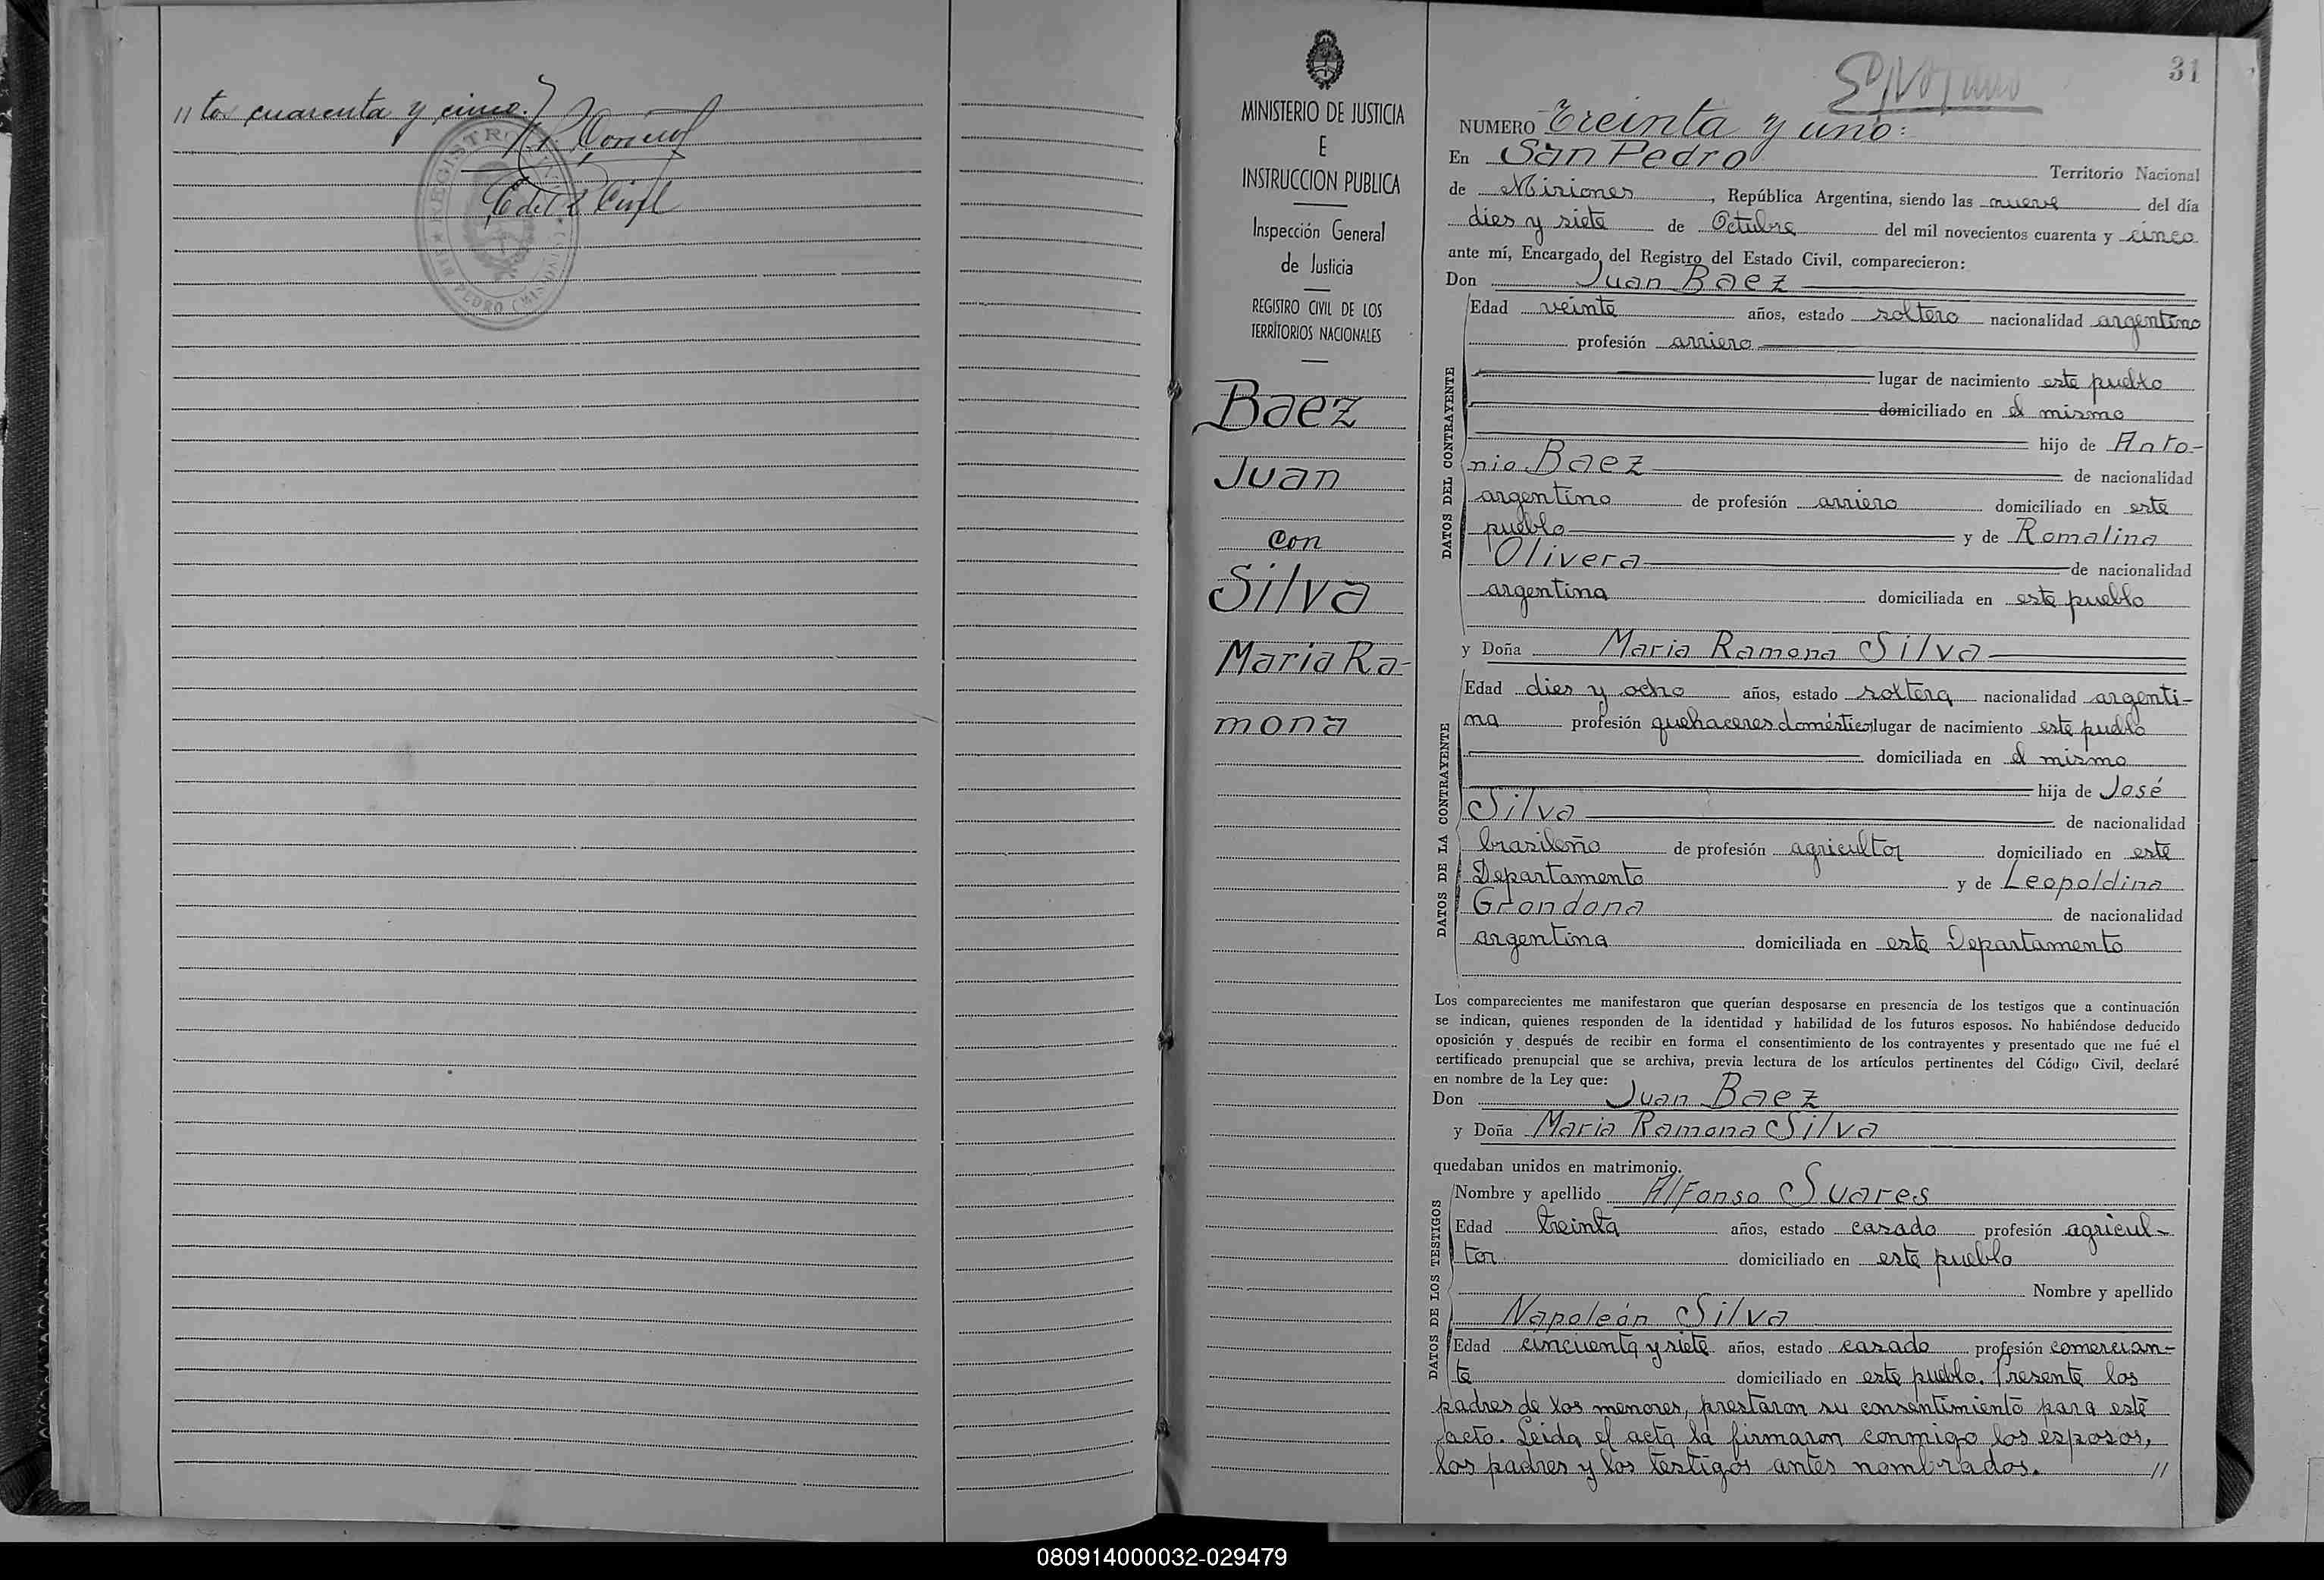 "tos cuarenta y cinco.
E. del R. Civil
31
MINISTERIO DE JUSTICIA
E
INSTRUCCION PUBLICA
Inspección General
de Justicia
REGISTRO CIVIL DE LOS
TERRITORIOS NACIONALES
Baez
Juan
con
Silva
Maria Ra-
mona
NUMERO Treinta y uno:
En San Pedro Territorio Nacional
de Misiones, República Argentina, siendo las nueve del día
dies y siete de Octubre del mil novecientos cuarenta y cinco
ante mí, Encargado del Registro del Estado Civil, comparecieron:
Don Juan Baez
DATOS DEL CONTRAYENTE
Edad veinte años, estado soltero nacionalidad argentino
profesión arriero
lugar de nacimiento este pueblo
domiciliado en el mismo
hijo de Anto-
nio Baez de nacionalidad
argentino de profesión arriero domiciliado en este
pueblo y de Romalina
Olivera de nacionalidad
argentina domiciliada en este pueblo
y Doña Maria Ramona Silva
DATOS DE LA CONTRAYENTE
Edad dies y ocho años, estado soltera nacionalidad argenti-
na profesión quehaceres domésticos lugar de nacimiento este pueblo
domiciliada en el mismo
hija de José
Silva de nacionalidad
brasileño de profesión agricultor domiciliado en este
Departamento y de Leopoldina
Grondona de nacionalidad
argentina domiciliada en este Departamento
Los comparecientes me manifestaron que querían desposarse en presencia de los testigos que a continuación
se indican, quienes responden de la identidad y habilidad de los futuros esposos. No habiéndose deducido
oposición y después de recibir en forma el consentimiento de los contrayentes y presentado que me fué el
certificado prenupcial que se archiva, previa lectura de los artículos pertinentes del Código Civil, declaré
en nombre de la Ley que:
Don Juan Baez
y Doña Maria Ramona Silva
quedaban unidos en matrimonio.
DATOS DE LOS TESTIGOS
Nombre y apellido Alfonso Suares
Edad treinta años, estado casado profesión agricul-
tor domiciliado en este pueblo
Nombre y apellido
Napoleón Silva
Edad cincuenta y siete años, estado casado profesión comercian-
te domiciliado en este pueblo. Presente los
padres de los menores, prestaron su consentimiento para este
acto. Leida el acta la firmaron conmigo los esposos,
los padres y los testigos antes nombrados. //
080914000032-029479